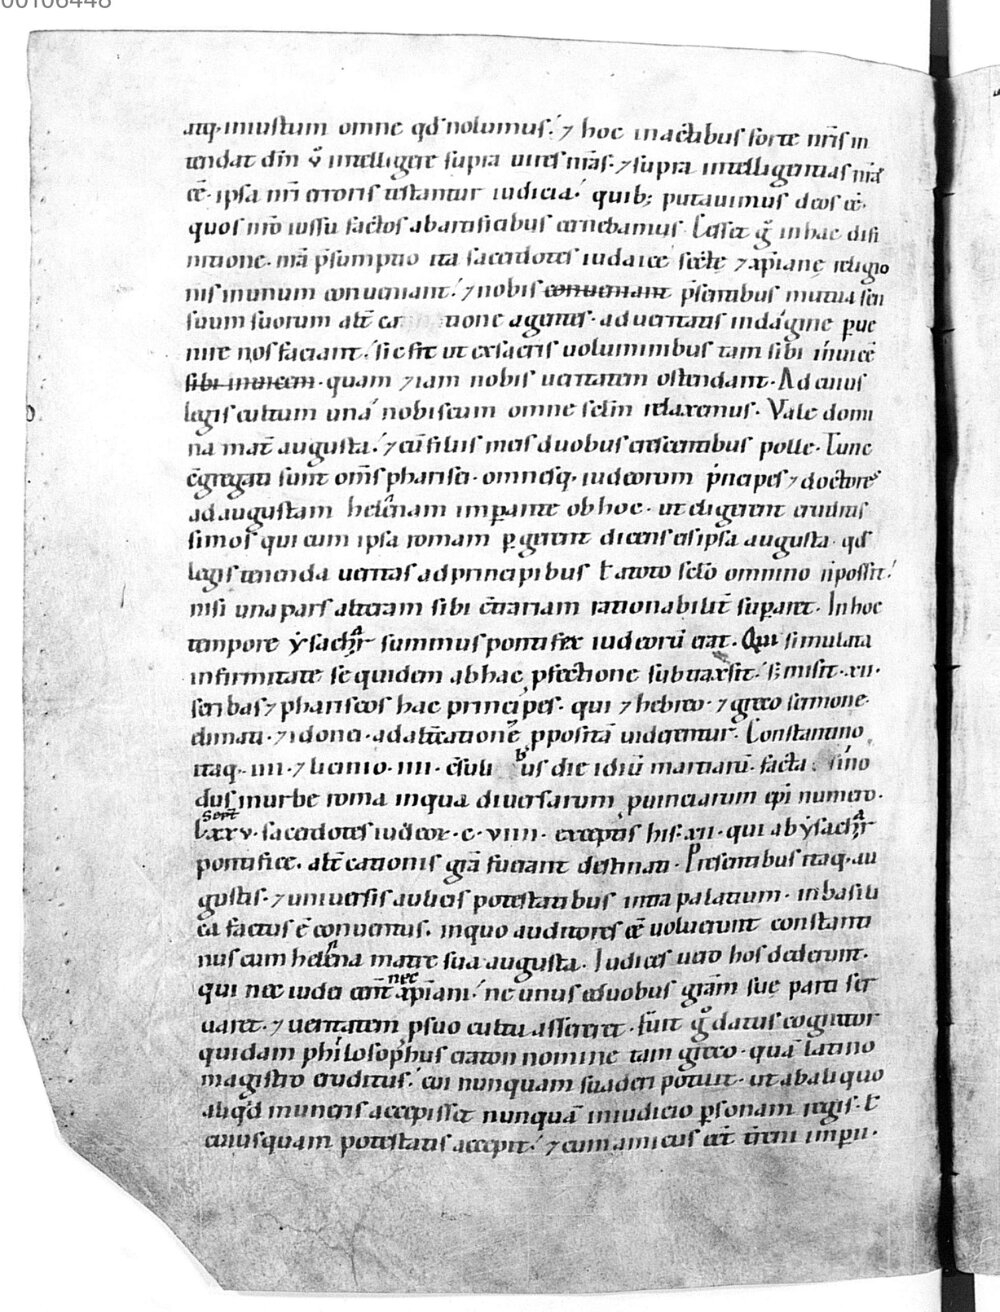 00106448
atq; iniustum omne qd̄ nolumus. ⁊ hoc inactibus forte nr̄is in
tendat dm̄ ṽ intelligere supra uires nr̄as. ⁊ supra intelligentias nr̄as
ee͞. ipsa nr̄i erroris testantur iudicia. quib; putauimus deos ee͞.
quos nr̄o iussu factos abartificibus cernebamus. Cesset g̊ inhac difi
nitione. nr̄a p̄sumptio ita sacerdotes iudaice secte ⁊ xp̄iane religio
nis inunum conueniant. ⁊ nobis conueniant p̄sentibus mutua sen
suum suorum alt̄ ca tione agentes. ad ueritatis indaginē pue
nire nos faciant. sic fit ut ex sacris uoluminibus tam sibi inuicē
sibi inuicem. quam ⁊ iam nobis ueritatem ostendant. Ad cuius
legis cultum una nobiscum omne sc̄lm relaxemus. Vale domi
na mat̄ augusta. ⁊ cū filiis meis duobus crescentibus polle. Tunc
c̄gregati sunt om̄s pharisei. omnesq; iudeorum p̍ncipes ⁊ doctores
ad augustam helenam imperante ob hoc. ut eligerent eruditis
simos qui cum ipsa romam p̱gerent dicens eis ipsa augusta. qd̄
legis tenenda ueritas ad principibus ł atoto sc̄lo omnino n̄ possit.
nisi una pars alteram sibi c̄trariam rationabilit̄ sup̱aret. In hoc
tempore ẏsachar summus pontifex iudeorū erat. Qui simulata
infirmitate se quidem ab hac p̱fectione subtraxit. s; misit .xii.
scribas ⁊ phariseos hac principes. qui ⁊ hebreo. ⁊ greco sermone
elimati. ⁊ idonei. ad alt̄cationē p̱positā uiderentur. Constantino
itaq; .iiii. ⁊ licinio .iiii. c̄sulibus die iduū martiarū. facta sino
dus in urbe roma in qua diuersarum puinciarum ep̄i numero.
sept̄
Lxxv. sacerdotes iudeor̄. c. viiii. exceptis his .xii. qui ab ẏsachar
pontifice. alt̄cationis grā fuerant destinati. Presentibus itaq; au
gustis. ⁊ uniuersis aulicis potestatibus intra palatium. in basili
ca factus ē conuentus. in quo auditores ee͞ uoluerunt constanti
nus cum helena matre sua augusta. Iudices uero hos dederunt.
qui nec iudei eēnt nec xp̄iani. ne unus eduobus gr̄am sue parti ser
uaret. ⁊ ueritatem p̱ suo cultu assereret. Fuit g̊ datus cognitor
quidam philosophus craton nomine tam greco. quā latino
magistro eruditus. cui nunquam suaderi potuit. ut ab aliquo
aliqd̄ muneris accepisset nunquā in iudicio p̱sonam regis. ł
cuiusquam potestatis accepit. ⁊ cum amicus eēt